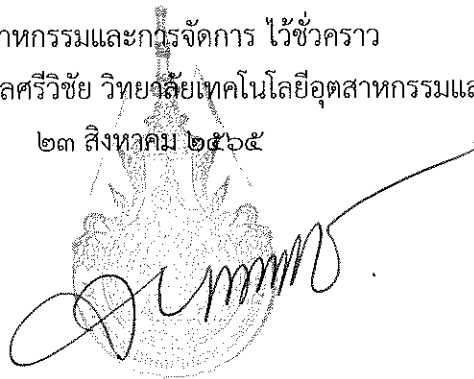 าหกรรมและการจัดการ ไว้ชั่วคราว
ลศรีวิชัย วิทยาลัยเทคโนโลยีอุตสาหกรรมแล
๒๓ สิงหาคม ๒๕๖๕